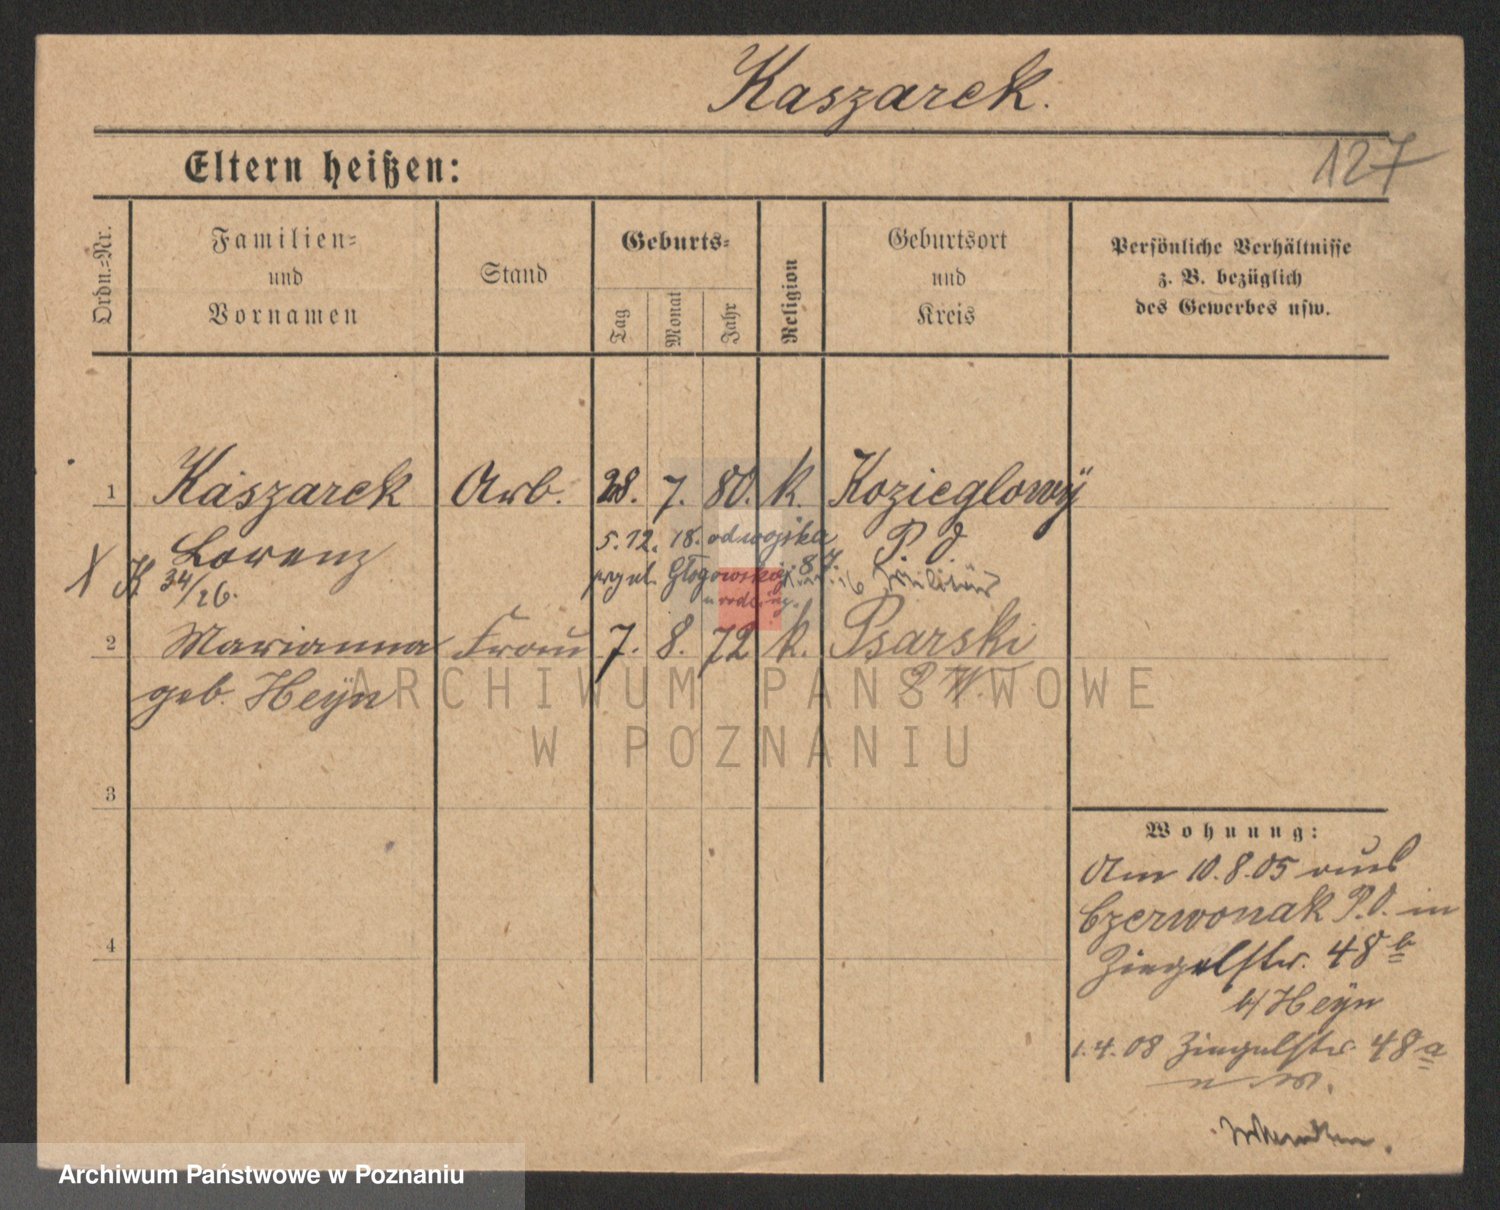 Kaszarek.
127
Eltern heißen:
Ordn.-Nr.
Familien-
und
Vornamen
Stand
Geburts-
Tag
Monat
Jahr
Religion
Geburtsort
und
Kreis
Persönliche Verhältnisse
z. B. bezüglich
des Gewerbes usw.
1 Kaszarek Arb. 28. 7. 80. k. Kozieglowÿ
Lorenz P. O.
5. 12. 18. od wojska
Głogowskiej 87
Militär
X K 34/26.
2 Marianna Frau 7. 8. 72 k. Psarski
geb. Heÿn P. W.
3
4
Wohnung:
Am 10. 8. 05 aus
Czerwonak P. O. in
Ziegelstr. 48 b
b/ Heÿn
1. 4. 08 Ziegelstr. 48 a
ARCHIWUM PAŃSTWOWE
W POZNANIU
Archiwum Państwowe w Poznaniu